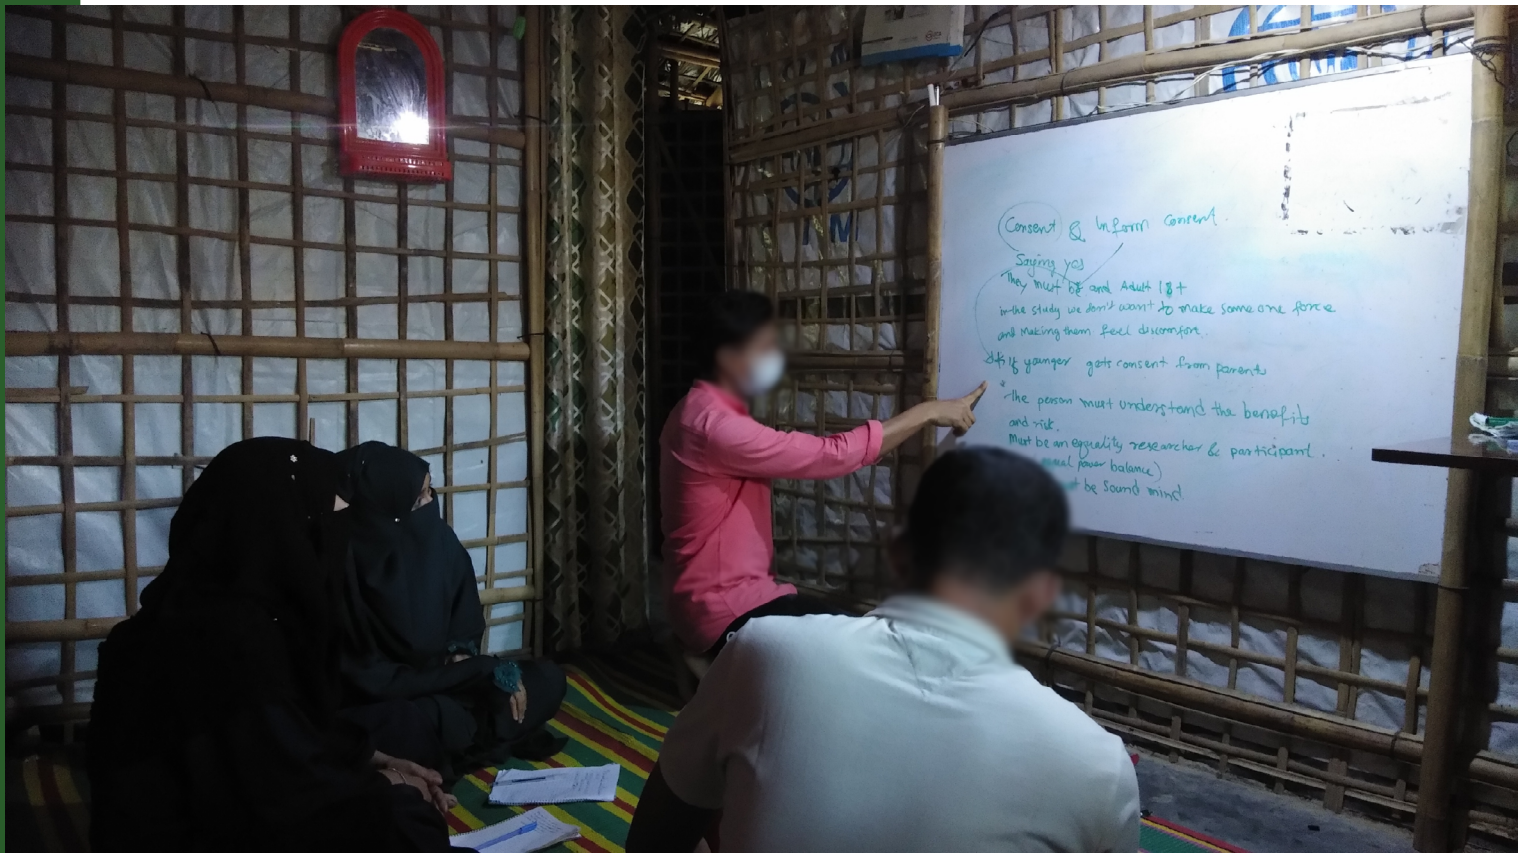 Consent & Inform Consent.
Saying yes
They must be and Adult 18+
in the study we don't want to make some one force
and Making them feel discomfore.
* If younger gets consent from parent
* The person must understand the benefits
and risk.
Must be an equality researcher & participant.
power balance)
be Sound mind.
IOM